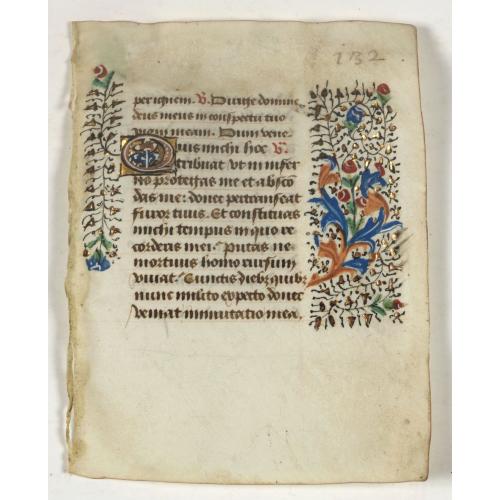 132
per ignem. V. Dirige domine
deus meus in conspectu tuo
viam meam. Dum vene
Quis michi hoc V.
tribuat vt in infer
no protegas me et absco
das me: donec pertranseat
furor tuus. Et constituas
michi tempus in quo re
corderis mei: putas ne
mortuus homo rursum
viuat. Cunctis diebz quibz
nunc milito expecto donec
veniat inmutatio mea.